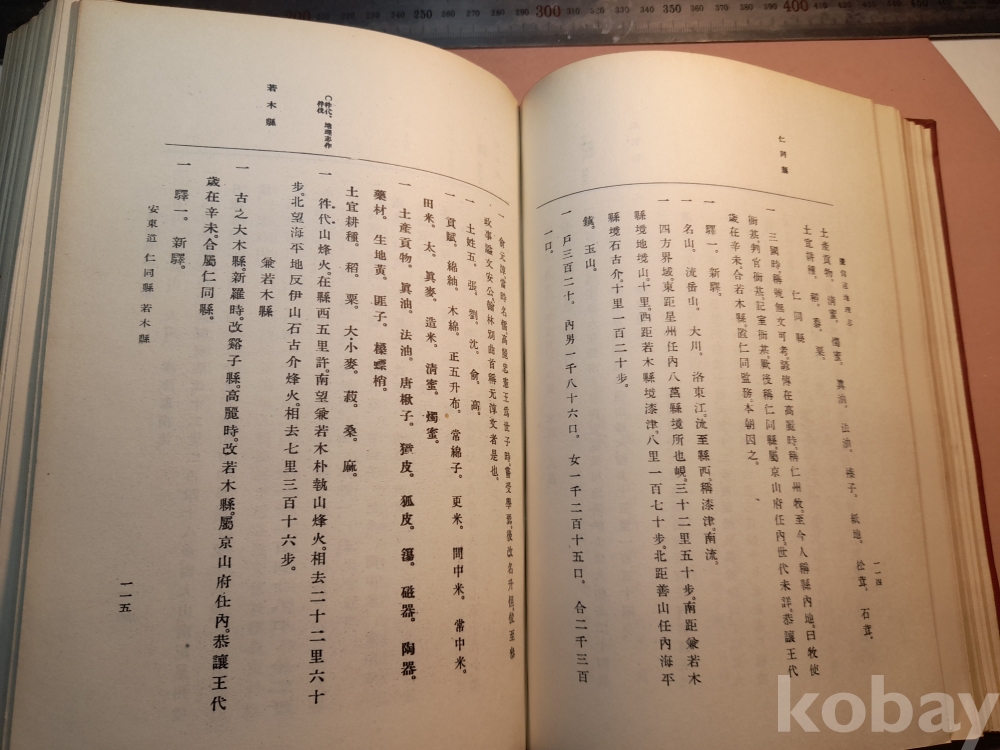 慶尚道地理志
一一四
土産貢物。淸蜜。燭蜜。眞油。法油。榛子。紙地。松茸。石茸。
土宜耕種。稻。黍。粟。
仁同縣
仁同縣
一 三國時、稱號無文可考。諺傳在高麗時、稱仁州牧、至今人稱縣內地、曰牧使
衙基、判官衙基、記室衙基、厥後稱仁同縣、屬京山府任內、世代未詳。恭讓王代
歲在辛未、合若木縣、置仁同監務。本朝因之。
一 驛一。新驛。
一 名山。流岳山。大川。洛東江。流至縣西、稱漆津、南流。
一 四方界域、東距星州任內八莒縣境所也峴、三十二里五十步。南距兼若木
縣境地境山、十里。西距若木縣境漆津、八里一百七十步。北距善山任內海平
縣境石古介十里一百二十步。
鎭。玉山。
一 戶三百二十。內男一千八十六口。女一千二百十五口。合二千三百
一口。
政事論文安公、翰林別曲首稱元淳文者是也。
一 土姓五。張。劉。沈。兪。高。
一 貢賦。綿紬。木綿。正五升布。常綿子。更米。間中米。常中米。
田米。太。眞麥。造米。淸蜜。燭蜜。
一 土產貢物。眞油。法油。唐楸子。狐皮。磁器。陶器。
藥材。生地黃。匪子。
土宜耕種。稻。粟。大小麥。菽。桑。麻。
一 件代山烽火。在縣西五里許。南望兼若木朴執山烽火。相去二十二里六十
步。北望海平地反伊山石古介烽火。相去七里三百十六步。
兼若木縣
若木縣
一 古之大木縣。新羅時、改谿子縣。高麗時、改若木縣。屬京山府任內。恭讓王代
歲在辛未、合屬仁同縣。
一 驛一。新驛。
安東道 仁同縣 若木縣
一一五
kobay